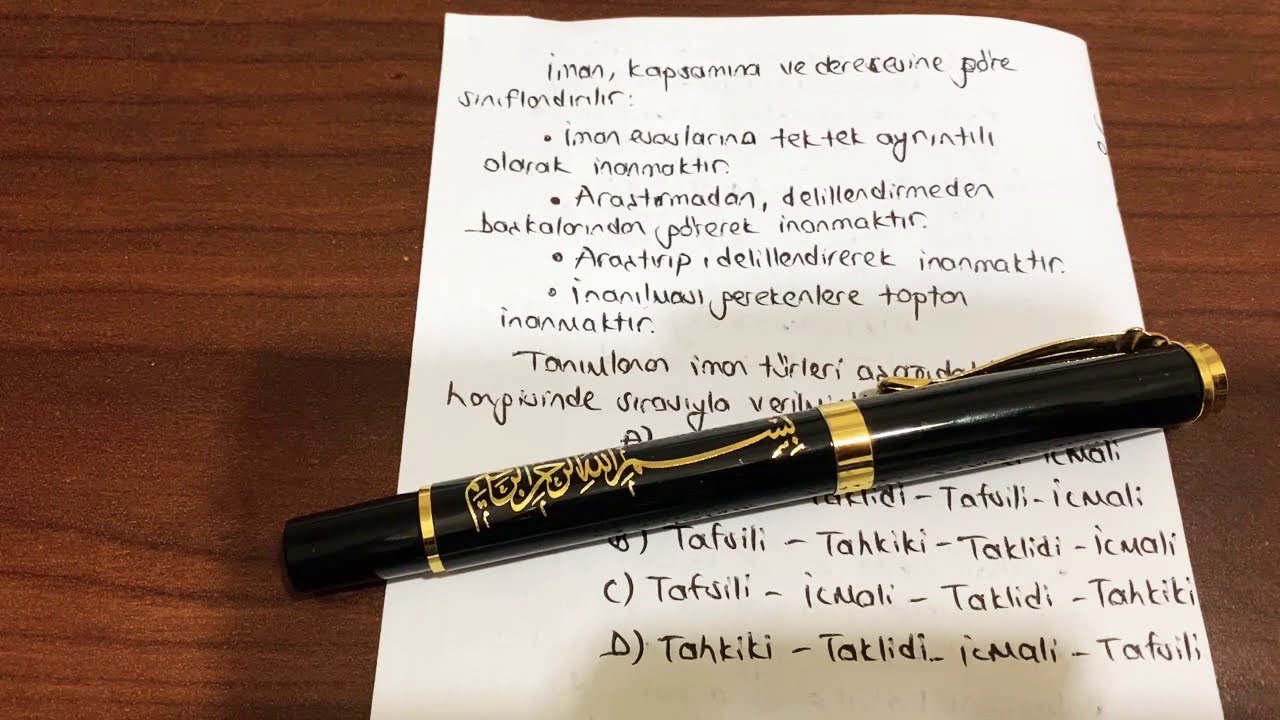 İman, kapsamına ve derecesine göre
sınıflandırılır:
• İman esaslarına tek tek ayrıntılı
olarak inanmaktır.
• Araştırmadan, delillendirmeden
başkalarından görerek inanmaktır.
• Araştırıp, delillendirerek inanmaktır.
• İnanılması gerekenlere toptan
inanmaktır.
Tanımlanan iman türleri
hangisinde sırasıyla
A)
İcmali
بسم الله الرحمن الرحيم
Taklidi - Tafsili - İcmali
B) Tafsili - Tahkiki - Taklidi - İcmali
C) Tafsili - İcmali - Taklidi - Tahkiki
D) Tahkiki - Taklidi - İcmali - Tafsili